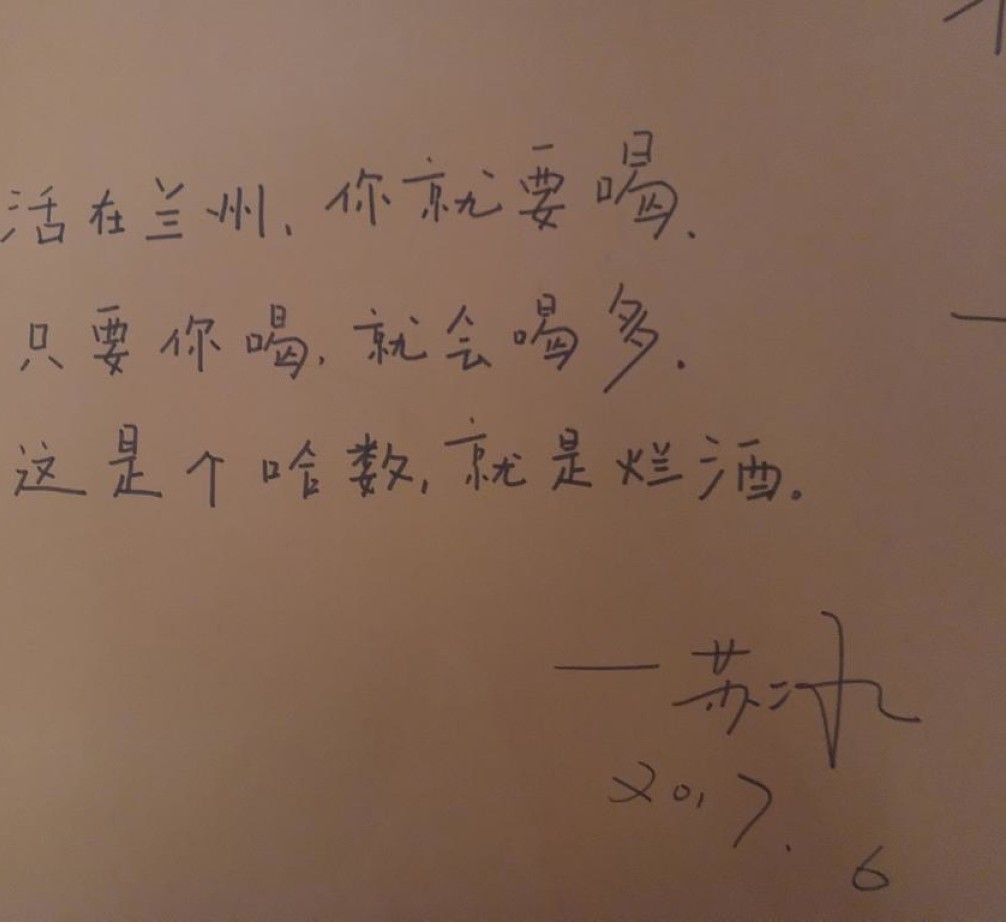 活在兰州、你就要喝.
只要你喝,就会喝多.
这是个啥数,就是烂酒。
——苏冰
2017.
6